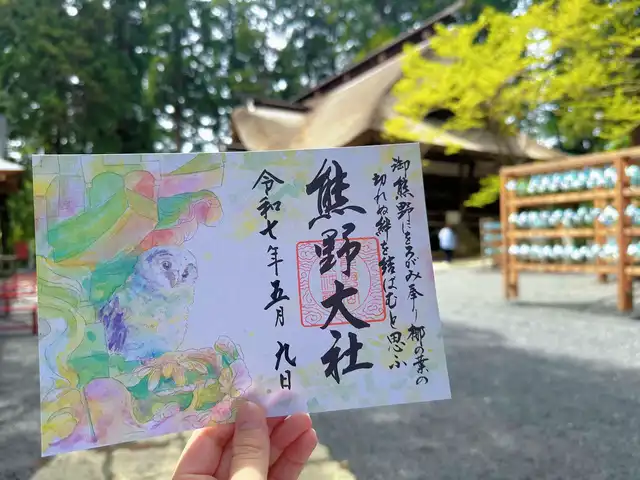 御熊野にをろがみ奉り梛の葉の
切れぬ絆を結ばむと思ふ
熊野大社
令和七年五月九日